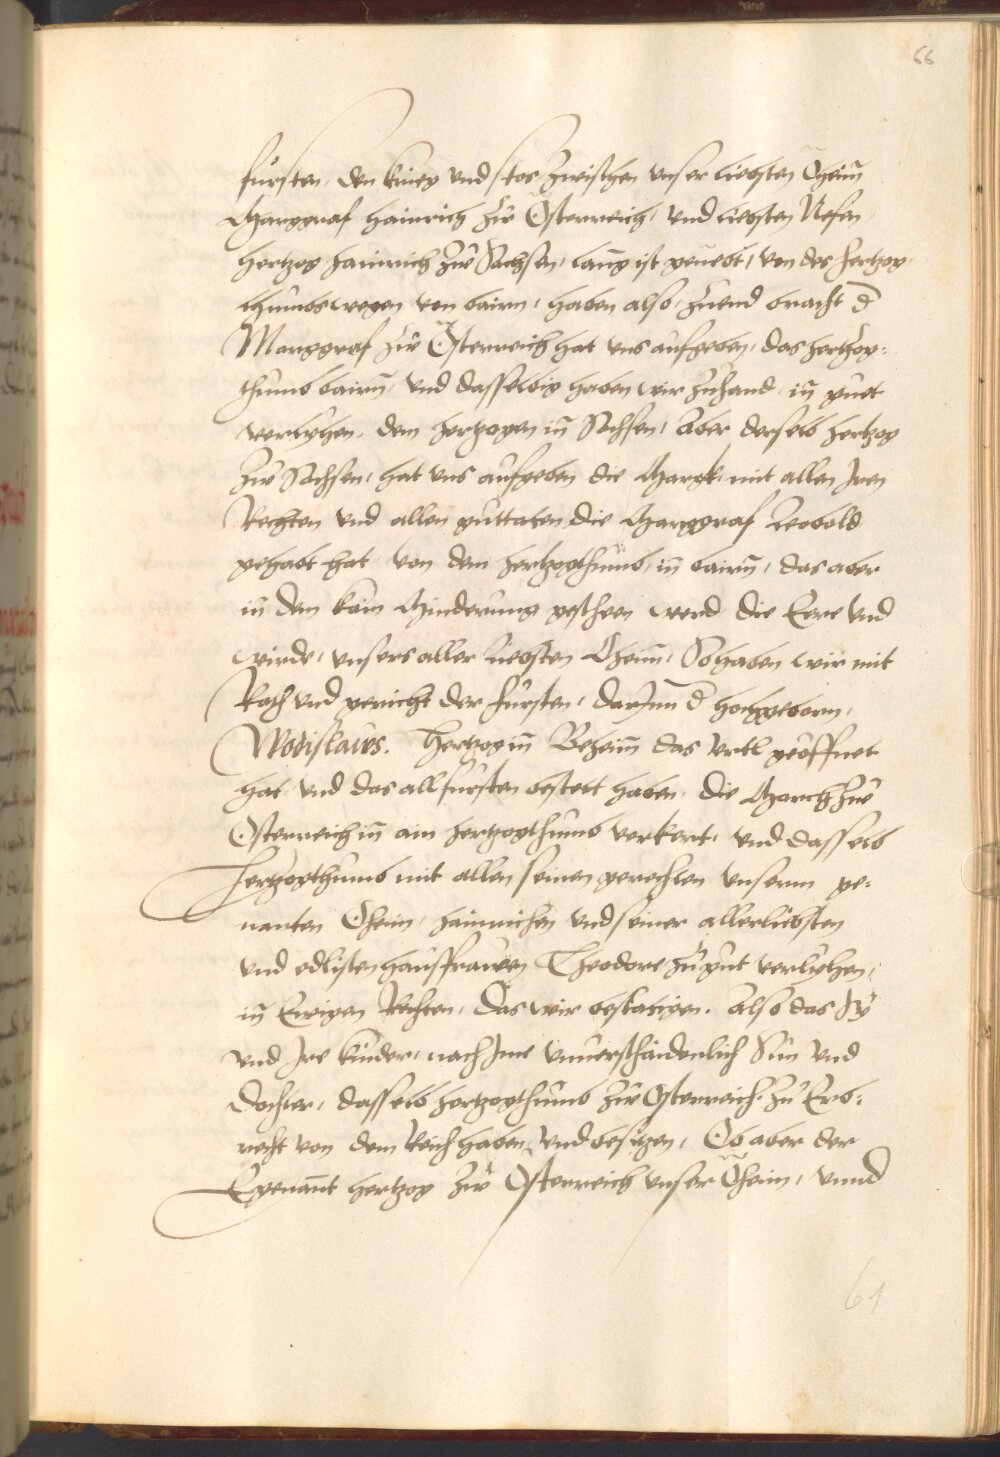 66
fürsten, den krieg vnd stos zwischen vnser liebsten Öheim
Marggraf Hainrich zw Österreich, vnd liebsten Nefen,
Hertzog Hainrich zw Sachsen, lang ist geuebt, von des Hertzog-
thumbs wegen von bairn, haben also, zuend bracht d
Marggraf zw Österreich hat vns aufgeben, das Hertzog-
thumb bairn, vnd dasselbig haben wir zuhand, in guet
verlyhen, dem Hertzogen in Sachsen, Aber derselb Hertzog
zw Sachsen, hat vns aufgeben die Margk, mit allen Iren
Rechten vnd allen guttaten, die Marggraf Leobold
gehabt hat von dem Hertzogthumb, in bairn, das aber
in dem kain Minderung geschen werd die Eere vnd
wirde, vnsers aller Liebsten Öheim, So haben wir mit
Rath vnd gericht der fürsten, darInn d hochgeborn,
Wodislaus. Hertzog in Behaim das vrtl geöffnet
hat vnd das all fürsten bestett haben, die March zw
Österreich in ain Hertzogthumb verkert, vnd dasselb
Hertzogthumb mit allen seinen gerechten vnserm ge-
nanten Öheim, Hainrichen vnd seiner allerliebsten
vnd edlisten hausfrawen Theodore zu gut verlyhen,
in Ewigen Rechten, Das wir bestatigen. Also das Sy
vnd Ire kinder, nach Ine vnuerschaidenlich Sün vnd
Dochter, dasselb Hertzogthumb zw Österreich zu Erb-
recht von dem Reich haben, vnd besitzen, Ob aber der
Egenant Hertzog zw Österreich vnser Öheim, vnnd
61